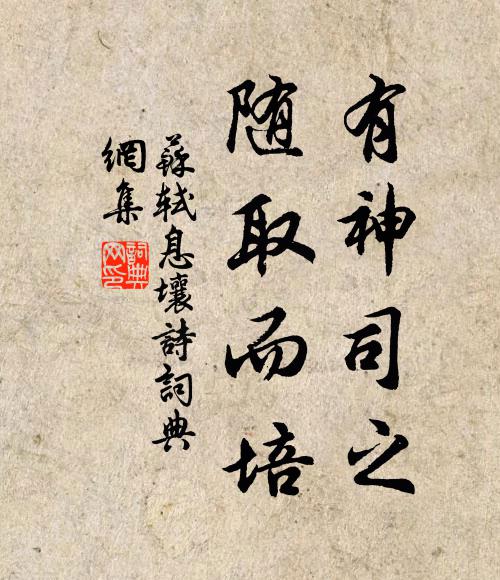 有神司之
随取而培
蘇軾息壤詩詞典
網集
詞典网印